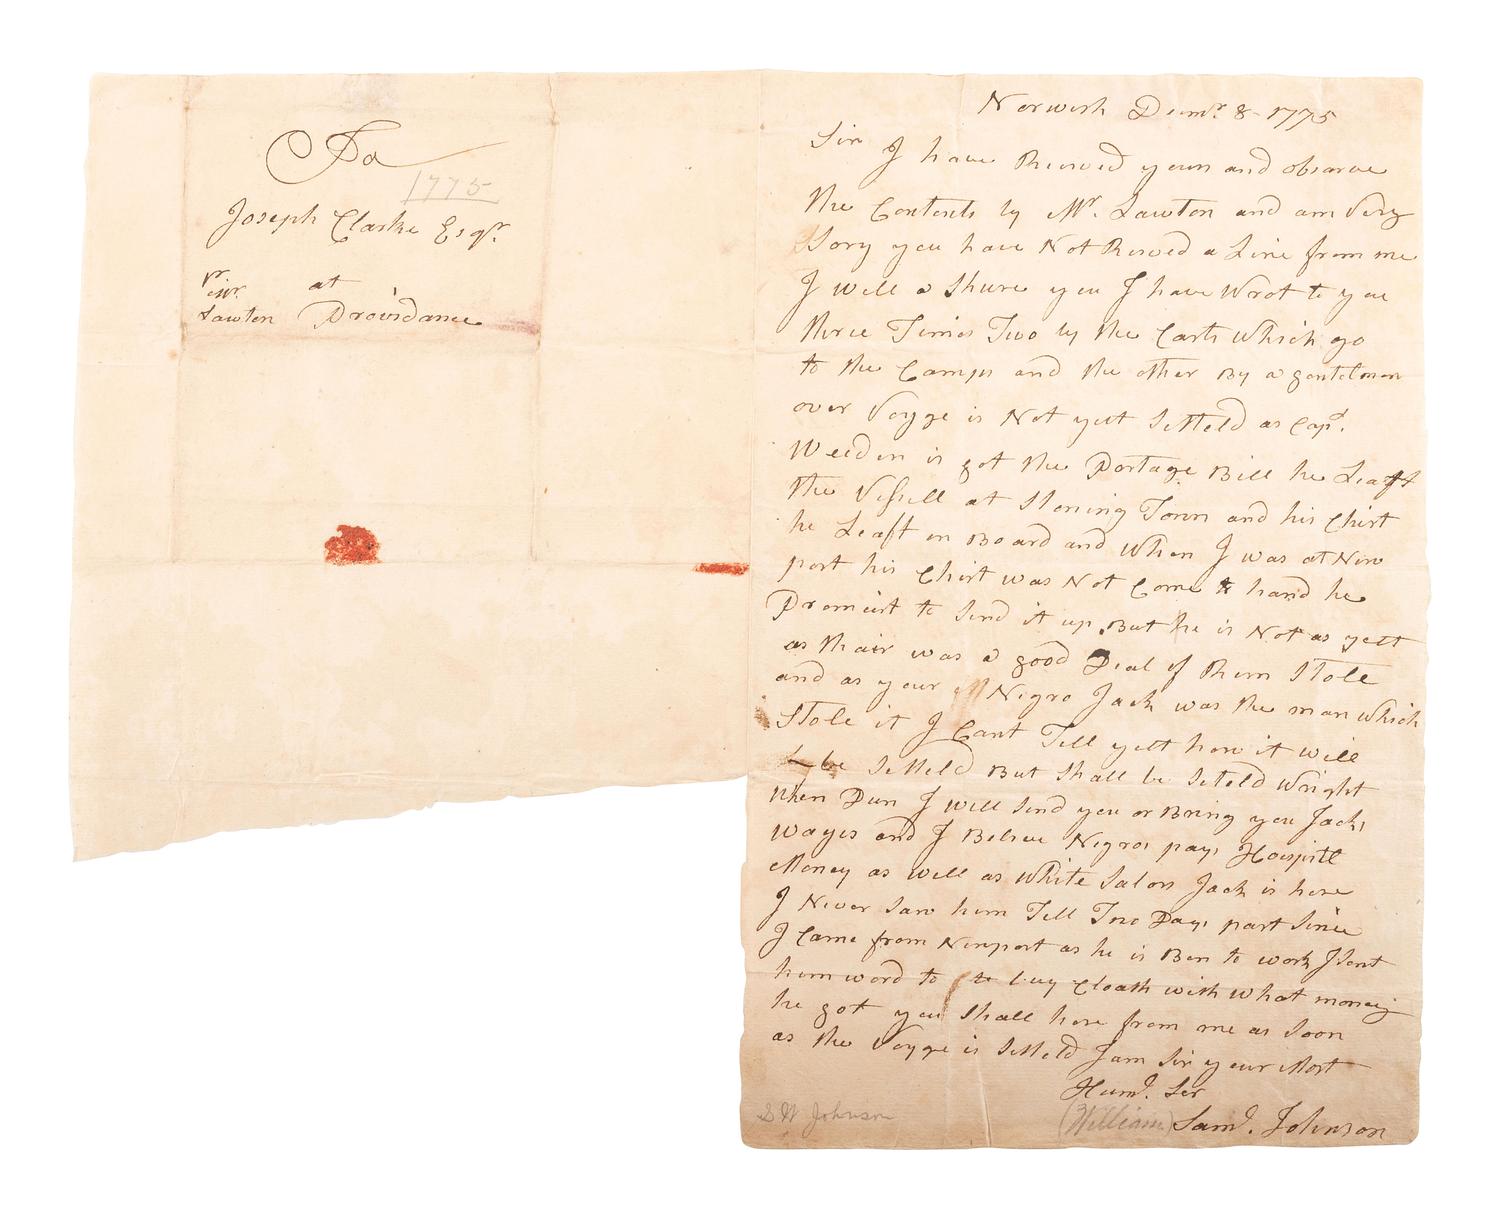 To
1775
Joseph Clarke Esqr.
pr
Lawton at Providance
Norwich Decmr. 8 1775
Sir I have Receved yours and observe
the Contents by Mr. Lawton and am Very
Sory you have Not Receved a Line from me
I will a Shure you I have Wrot to you
three Times Two by the Carts Which go
to the Camps and the other By a gentelman
over Voyge is Not yett Setteld as Capt.
Weeden is got the Portage Bill he Leaft
the Vessell at Stoning Town and his Chist
he Leaft on Board and When I was at New
port his Chist was Not Come to hand he
Promist to Send it up But he is Not as yett
as thair was a good Deal of Rum Stole
and as your Negro Jack was the man Which
Stole it I Cant Tell yett how it will
be Setteld But Shall be Seteld Wright
When Dun I will Send you or Bring you Jacks
Wages and I Beleve Negros pays Hospitl
Money as well as White Salors Jack is here
I Never Saw him Tell Two Days past Since
I Came from Newport as he is Ben to work I Sent
him word to to buy Cloath with What money
he got you Shall here from me as Soon
as the Voyge is Setteld I am Sir your Most
Huml. Ser
(William) Saml. Johnson
S W Johnson